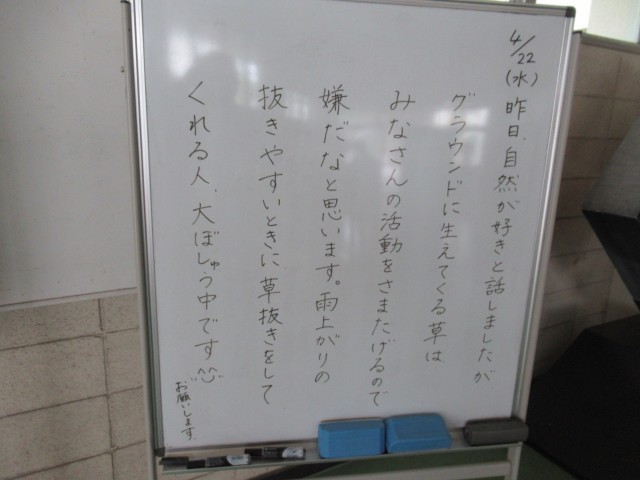 4/22(水)昨日、自然が好きと話しましたが
グラウンドに生えてくる草は
みなさんの活動をさまたげるので
嫌だなと思います。雨上がりの
抜きやすいときに草抜きをして
くれる人、大ぼしゅう中です^^
お願いします